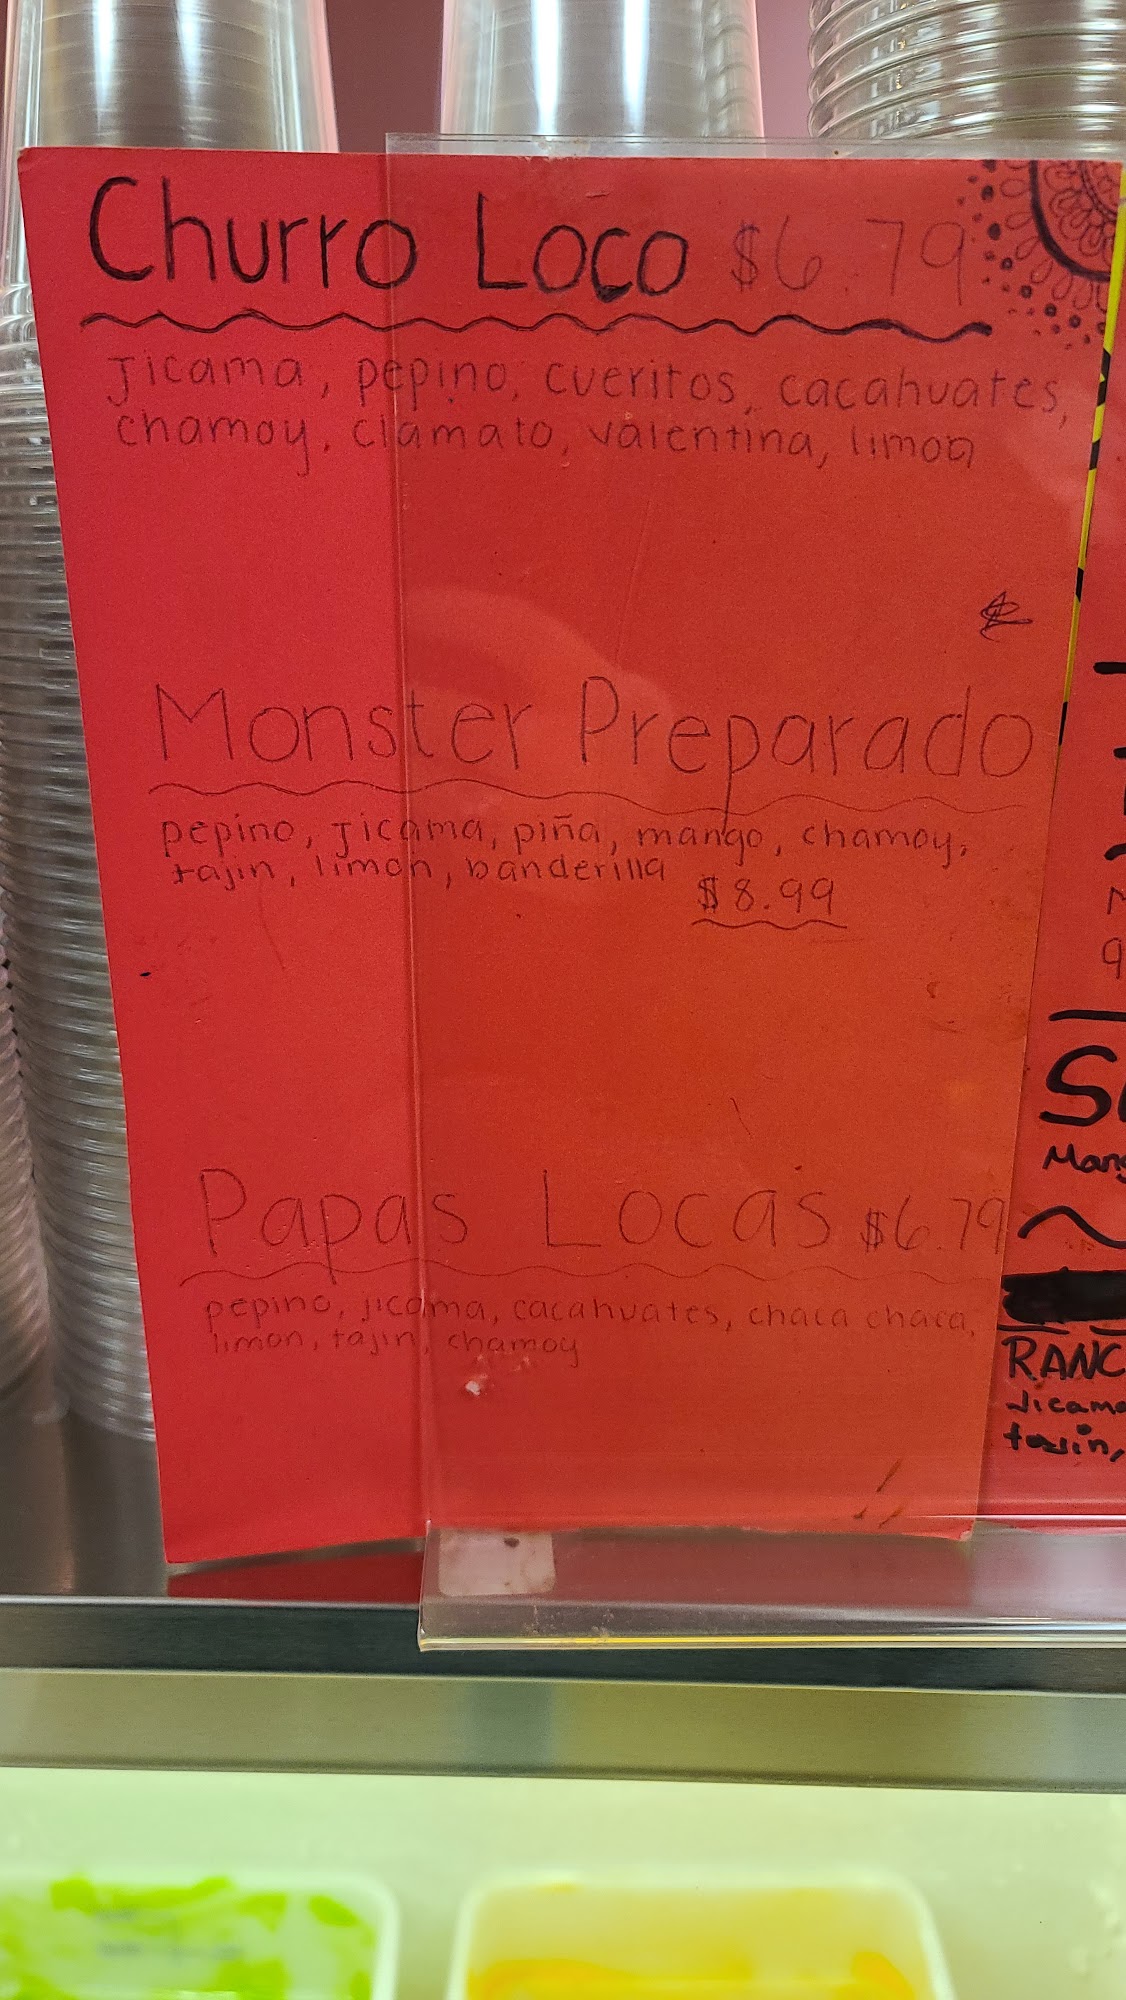 Churro Loco $6.79
Jicama, pepino, cueritos, cacahuates,
chamoy, clamato, valentina, limon
Monster Preparado
pepino, Jicama, piña, mango, chamoy,
tajin, limon, banderilla
$8.99
Papas Locas $6.79
pepino, jicama, cacahuates, chaca chaca,
limon, tajin, chamoy